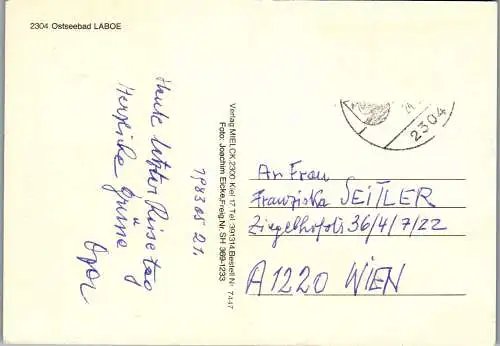 2304 Ostseebad LABOE
Heute letzter Reisetag
Herzliche Grüsse
Opa
1983 05 21.
Verlag MIELCK 2300 Kiel 17, Tel. 391314, Bestell Nr. 7447
Foto: Joachim Eicke, Freig. Nr. SH 369-1233
2304
An Frau
Franziska SEITLER
Ziegelhofstr 36/4/7/22
A1220 WIEN